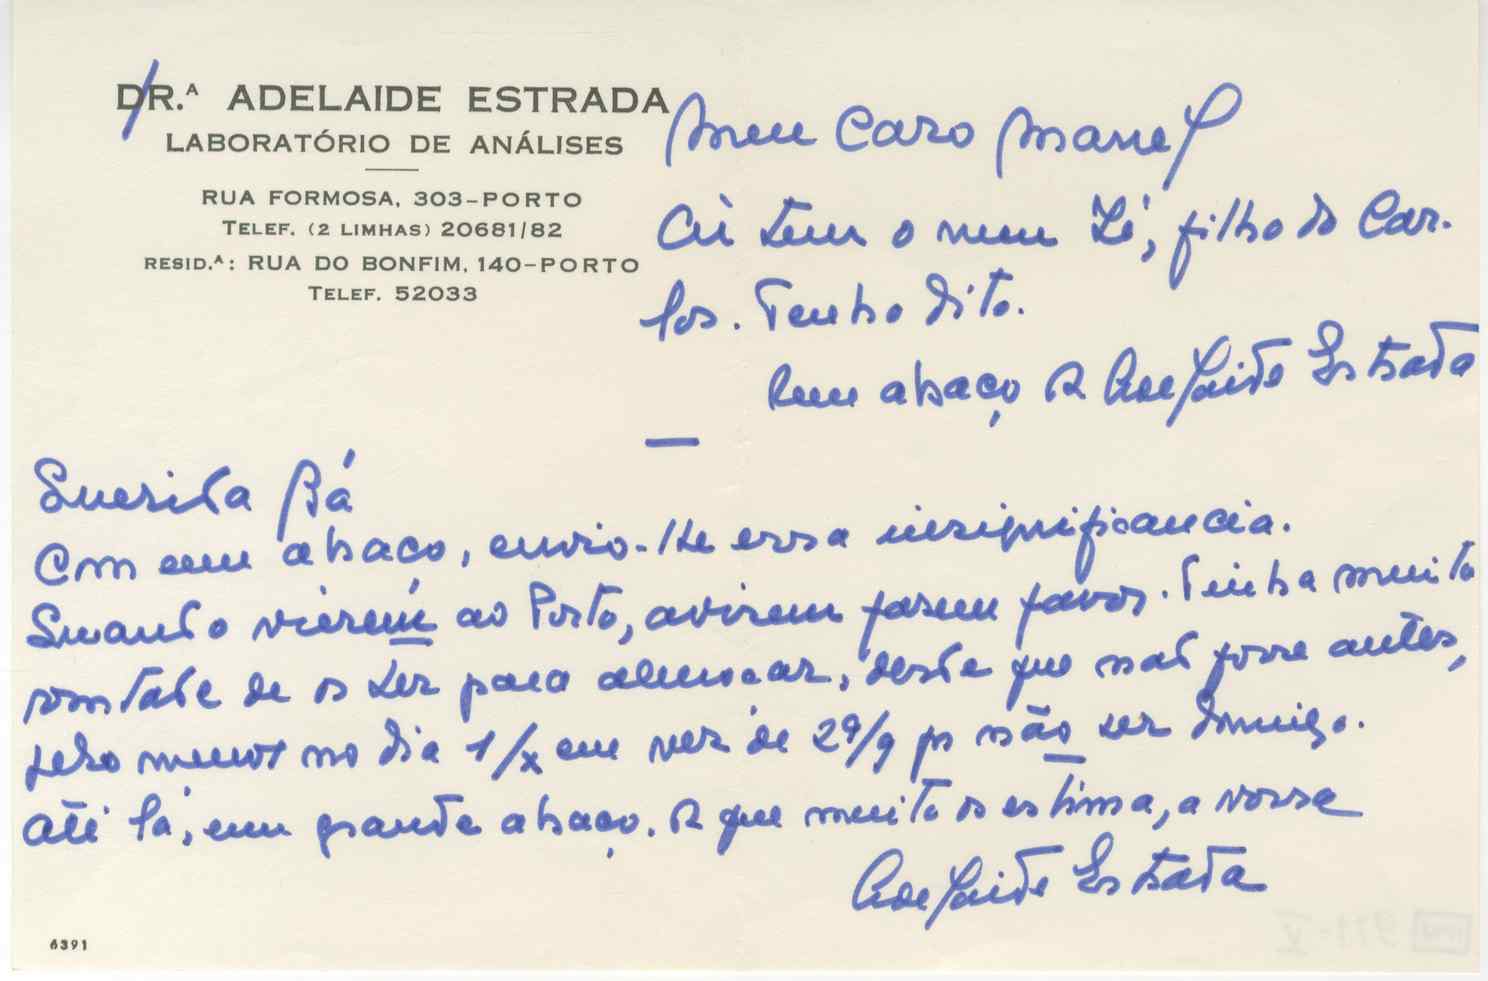 DR.ᴬ ADELAIDE ESTRADA
LABORATÓRIO DE ANÁLISES
RUA FORMOSA, 303-PORTO
TELEF. (2 LIMHAS) 20681/82
RESID.ᴬ: RUA DO BONFIM, 140-PORTO
TELEF. 52033
Meu Caro Manel
Cá tem o meu Zé, filho do Car-
los. Tenho dito.
Um abraço da Adelaide Estrada
Querida Bá
Com um abraço, envio-lhe essa insignificancia.
Quando vierem ao Porto, avisem fazem favor. Tinha muita
vontade de os ter para almoçar, desde que não fosse antes,
pelo menos no dia 1/X em vez de 29/9 p.ª não ser domingo.
Até lá, um grande abraço. Da que muito os estima, a vossa
Adelaide Estrada
6391